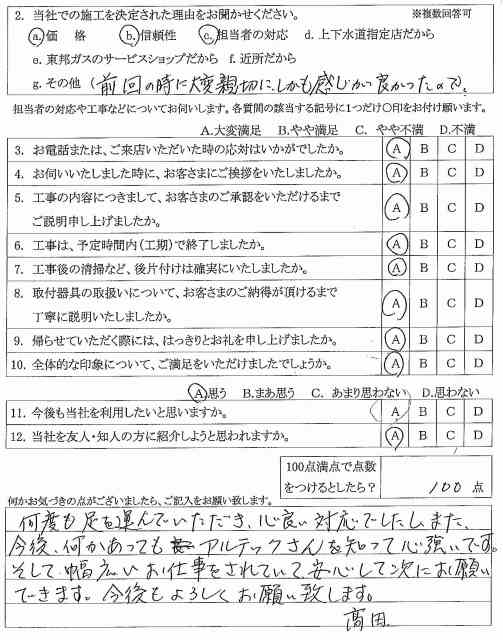 2. 当社での施工を決定された理由をお聞かせください。 ※複数回答可
a.価 格 b.信頼性 c.担当者の対応 d.上下水道指定店だから
e.東邦ガスのサービスショップだから f.近所だから
g.その他（前回の時に大変親切に、しかも感じが良かったので）
担当者の対応や工事などについてお伺いします。各質問の該当する記号に1つだけ〇印をお付け願います。
A.大変満足 B.やや満足 C. やや不満 D.不満
3. お電話または、ご来店いただいた時の応対はいかがでしたか。 A B C D
4. お伺いいたしました時に、お客さまにご挨拶をいたしましたか。 A B C D
5. 工事の内容につきまして、お客さまのご承認をいただけるまで A B C D
ご説明申し上げましたか。
6. 工事は、予定時間内(工期)で終了しましたか。 A B C D
7. 工事後の清掃など、後片付けは確実にいたしましたか。 A B C D
8. 取付器具の取扱いについて、お客さまのご納得が頂けるまで A B C D
丁寧に説明いたしましたか。
9. 帰らせていただく際には、はっきりとお礼を申し上げましたか。 A B C D
10. 全体的な印象について、ご満足をいただけましたでしょうか。 A B C D
A.思う B.まあ思う C. あまり思わない D.思わない
11. 今後も当社を利用したいと思いますか。 A B C D
12. 当社を友人・知人の方に紹介しようと思われますか。 A B C D
100点満点で点数
をつけるとしたら？ 100 点
何かお気づきの点がございましたら、ご記入をお願い致します。
何度も足を運んでいただき、心良い対応でしたし、また、
今後、何かあっても アルテックさんを知って心強いです。
そして、幅広いお仕事をされていて、安心して次にお願い
できます。今後もよろしくお願い致します。
高田